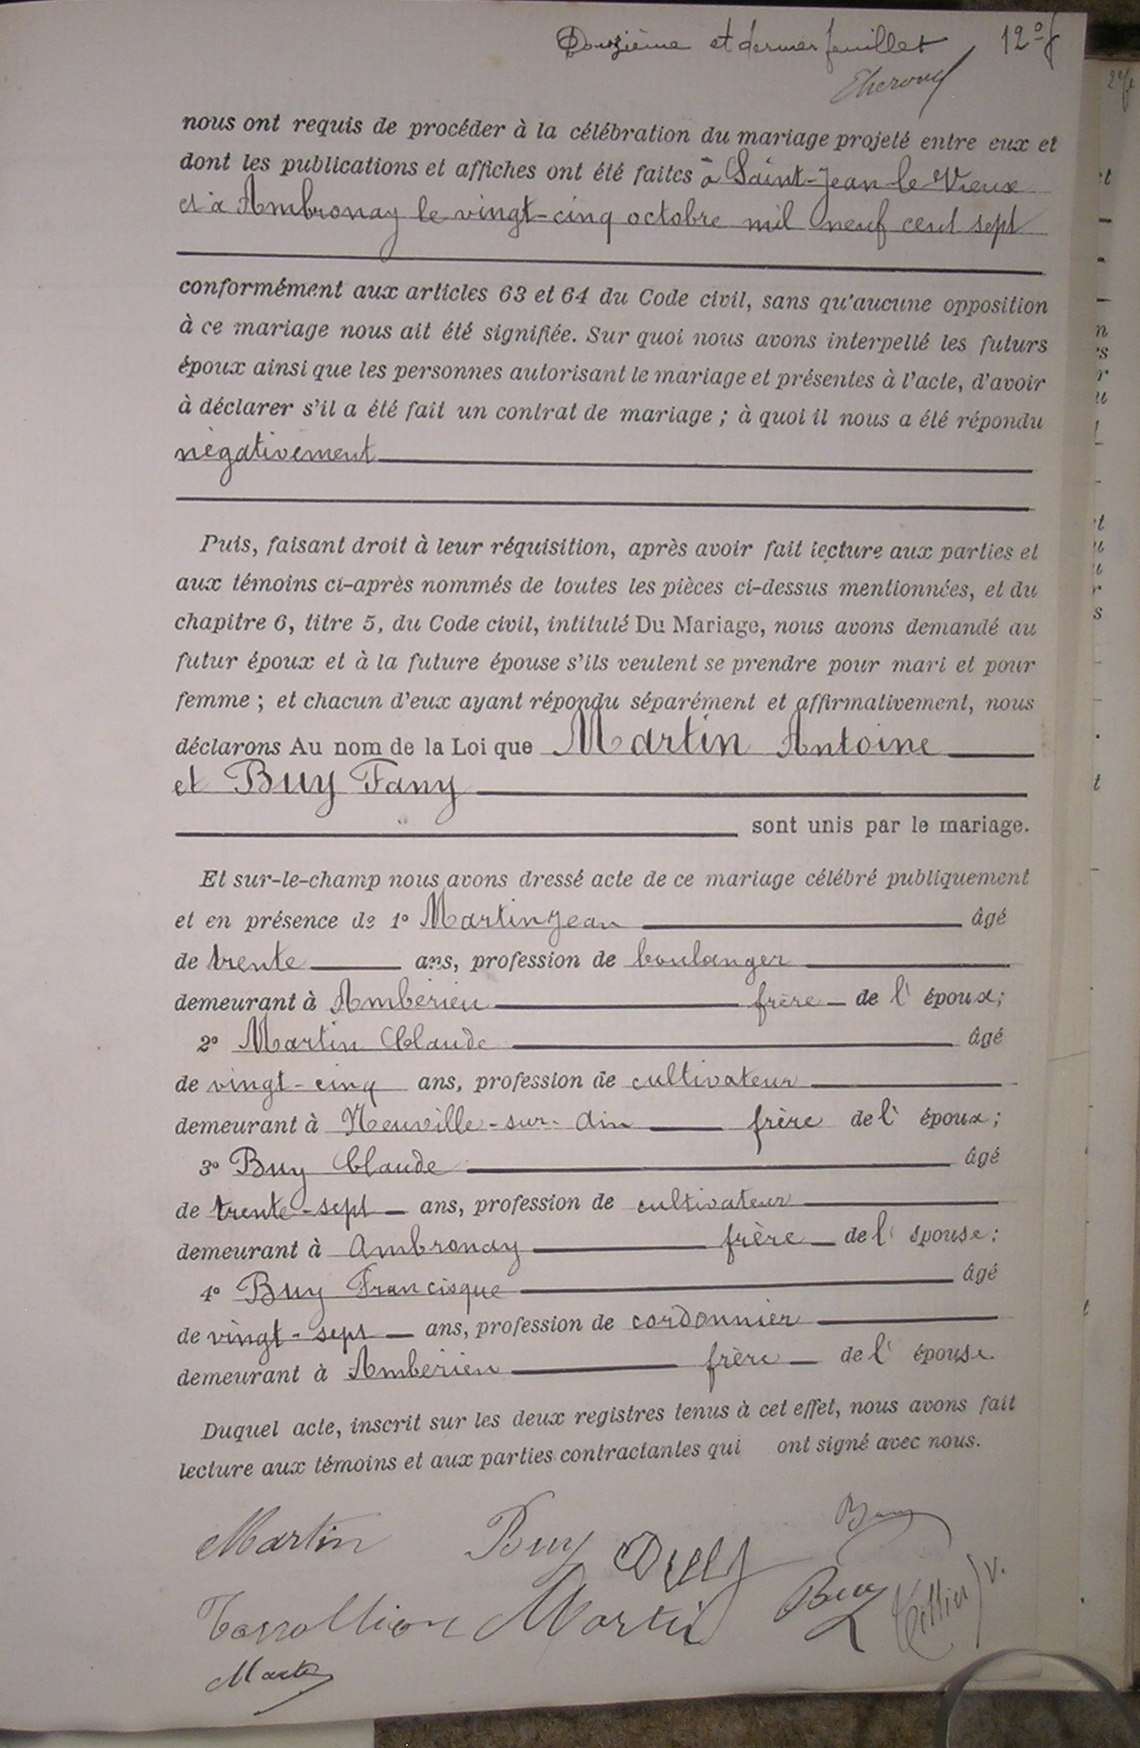 Douzième et dernier feuillet 12e f
nous ont requis de procéder à la célébration du mariage projeté entre eux et
dont les publications et affiches ont été faites à Saint-Jean-le-Vieux
et à Ambronay le vingt-cinq octobre mil neuf cent sept
conformément aux articles 63 et 64 du Code civil, sans qu'aucune opposition
à ce mariage nous ait été signifiée. Sur quoi nous avons interpellé les futurs
époux ainsi que les personnes autorisant le mariage et présentes à l'acte, d'avoir
à déclarer s'il a été fait un contrat de mariage ; à quoi il nous a été répondu
négativement
Puis, faisant droit à leur réquisition, après avoir fait lecture aux parties et
aux témoins ci-après nommés de toutes les pièces ci-dessus mentionnées, et du
chapitre 6, titre 5, du Code civil, intitulé Du Mariage, nous avons demandé au
futur époux et à la future épouse s'ils veulent se prendre pour mari et pour
femme ; et chacun d'eux ayant répondu séparément et affirmativement, nous
déclarons Au nom de la Loi que Martin Antoine
et Buy Fany
sont unis par le mariage.
Et sur-le-champ nous avons dressé acte de ce mariage célébré publiquement
et en présence de 1° Martin Jean âgé
de trente ans, profession de boulanger
demeurant à Ambérieu frère de l'époux;
2° Martin Claude âgé
de vingt-cinq ans, profession de cultivateur
demeurant à Neuville-sur-Ain frère de l'époux;
3° Buy Claude âgé
de trente-sept ans, profession de cultivateur
demeurant à Ambronay frère de l'épouse;
4° Buy Francisque âgé
de vingt-sept ans, profession de cordonnier
demeurant à Ambérieu frère de l'épouse
Duquel acte, inscrit sur les deux registres tenus à cet effet, nous avons fait
lecture aux témoins et aux parties contractantes qui ont signé avec nous.
Martin Buy Buy
Martin Buy
Martin